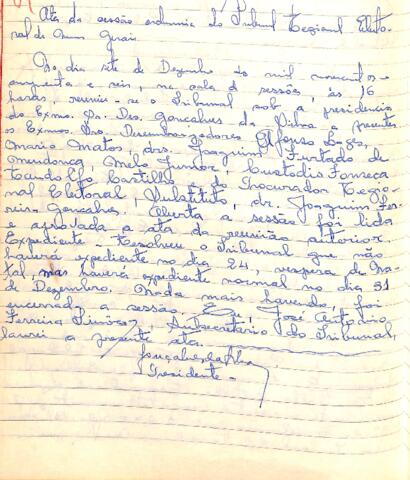 Ata da sessão ordinaria do Tribunal Regional Eleito-
ral de Minas Gerais.
No dia sete de Dezembro de mil novecentos e
cinquenta e seis, na sala de sessões, às 16
horas, reuniu-se o Tribunal sob a presidencia
do Exmo. Sr. Des. Gonçalves da Silva e presentes
os Exmos. Srs. Desembargadores Afonso Lages,
Mario Matos, drs. Joaquim Furtado de
Mendonça, Melo Junior, Custodio Fonseca
e do Procurador Regio-
nal Eleitoral, Substituto, dr. Joaquim Fer-
reira Gonçalves. Aberta a sessão foi lida
e aprovada a ata da reunião anterior.
Expediente - Resolveu o Tribunal que não
haverá expediente no dia 24, vespera de Na-
tal, mas haverá expediente normal no dia 31
de Dezembro. Nada mais havendo, foi
encerrada a sessão. Eu, José Antonio
Ferreira Simões, Subsecretario do Tribunal,
lavrei a presente ata.
Gonçalves da Silva
Presidente -